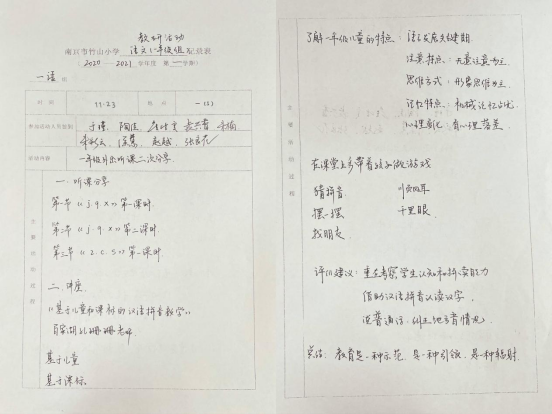 教研活动
南京市竹山小学 语文(一)年级组 记录表
(2020—2021 学年度 第一学期)
一语
时间 11.23 地点 一(3)
参加活动人员签到
活动内容 一年级外出听课二次分享
主要活动过程
一、听课分享
第一节《j.q.x》第一课时
第二节《j.q.x》第二课时
第三节《z.c.s》第一课时
二、讲座
《基于儿童和课标的汉语拼音教学》
基于儿童
基于课标
主要活动过程
了解一年级儿童的特点:语言发展关键期
注意特点:无意注意为主
思维方式:形象思维为主
记忆特点:机械记忆占优
心理变化:有心理落差
在课堂上多带着孩子做游戏
猜拼音 顺风耳
摆一摆 千里眼
找朋友
评价建议:重在考察学生认知和拼读能力
借助汉语拼音认读汉字
说普通话、纠正地方音情况
总结:教育是一种示范,是一种引领,是一种辐射.